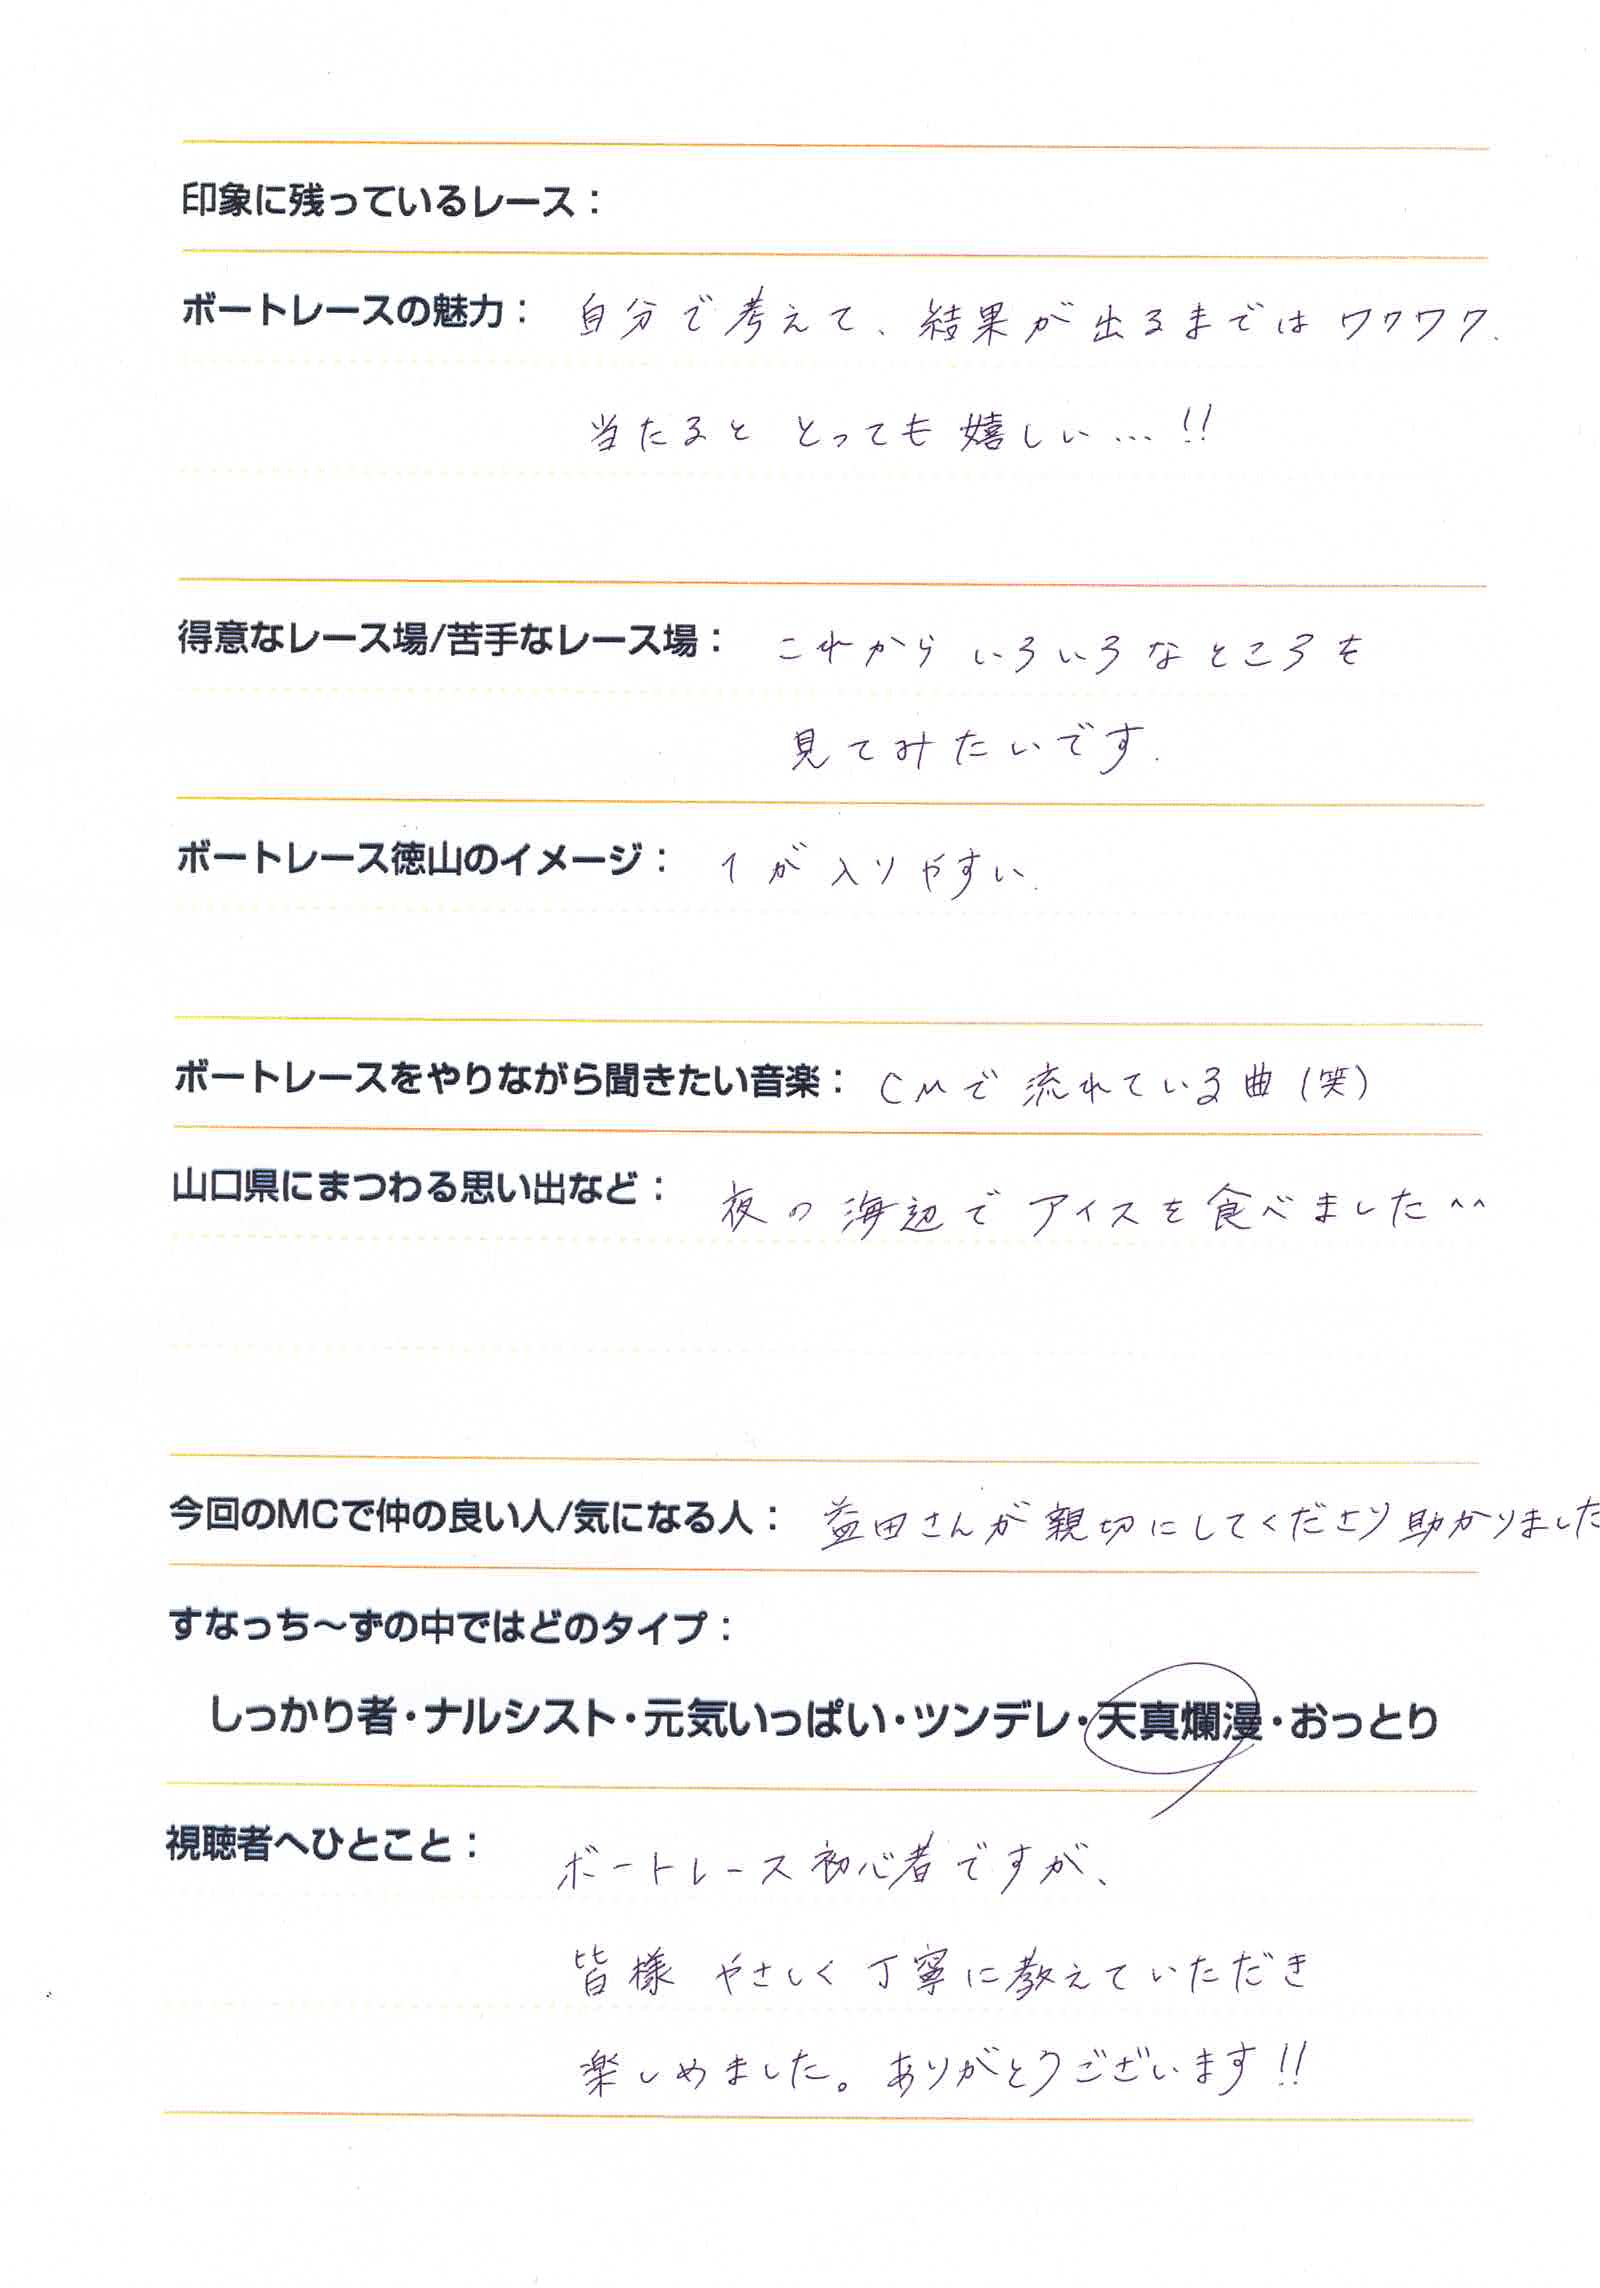 印象に残っているレース：
ボートレースの魅力： 自分で考えて、結果が出るまではワクワク.
当たると とっても嬉しい…!!
得意なレース場/苦手なレース場： これから いろいろなところを
見てみたいです.
ボートレース徳山のイメージ： 1が入りやすい.
ボートレースをやりながら聞きたい音楽： CMで流れている曲(笑)
山口県にまつわる思い出など： 夜の海辺でアイスを食べました^^
今回のMCで仲の良い人/気になる人： 益田さんが親切にしてくださり助かりました
すなっち〜ずの中ではどのタイプ：
しっかり者・ナルシスト・元気いっぱい・ツンデレ・天真爛漫・おっとり
視聴者へひとこと： ボートレース初心者ですが、
皆様 やさしく丁寧に教えていただき
楽しめました。ありがとうございます!!